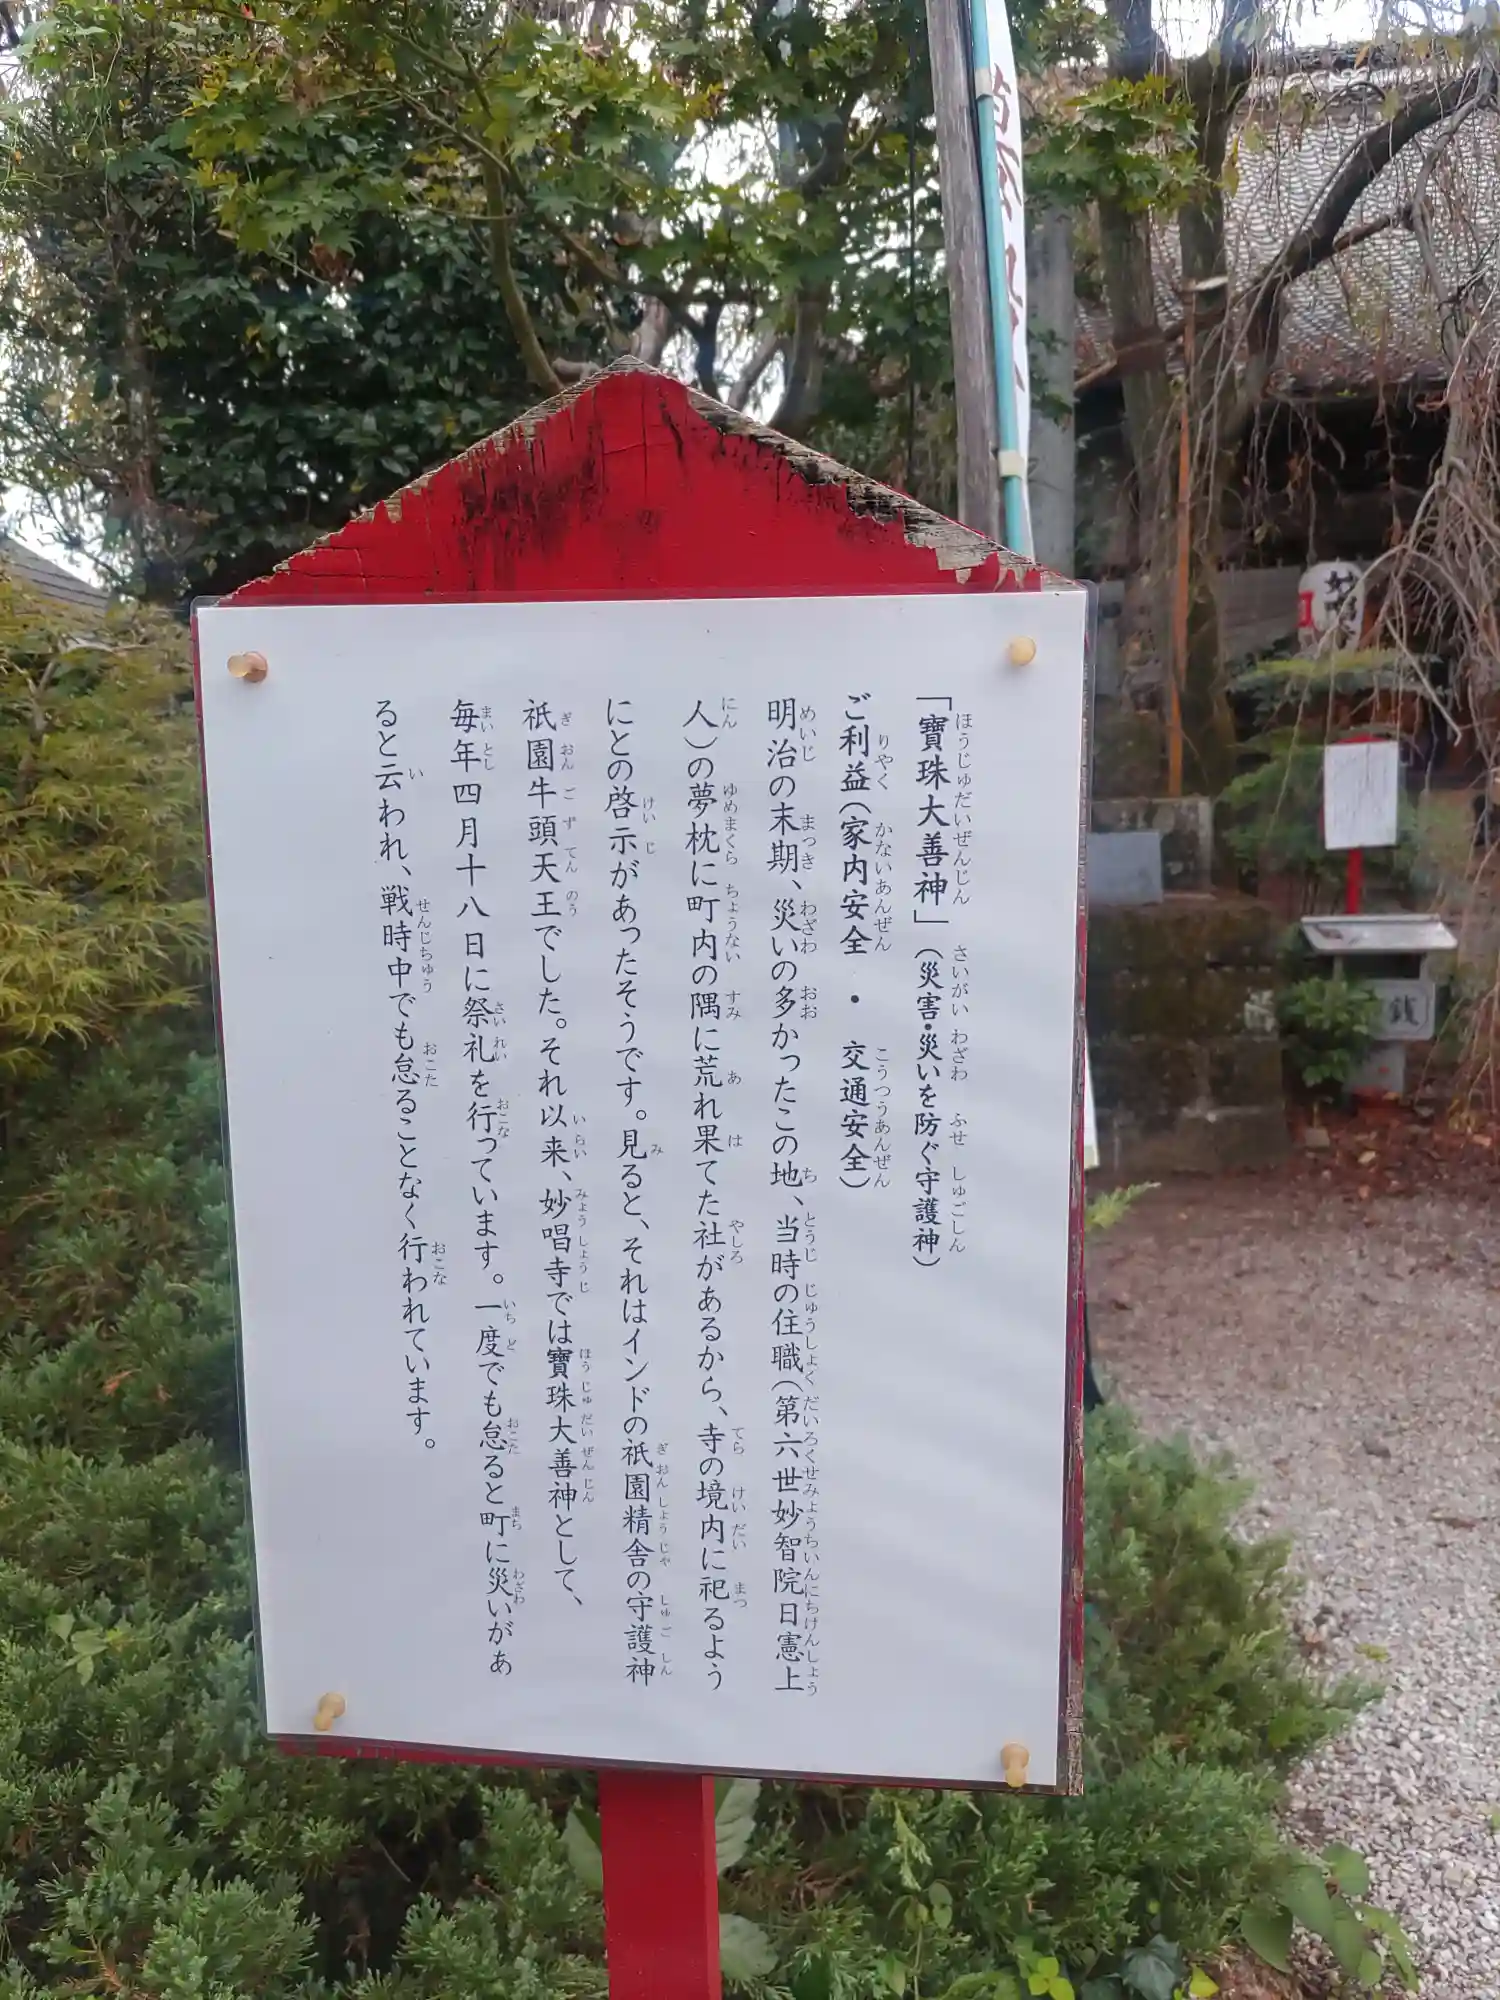 「寶珠大善神」（災害・災いを防ぐ守護神）
ご利益（家内安全 ・ 交通安全）
明治の末期、災いの多かったこの地、当時の住職（第六世妙智院日憲上
人）の夢枕に町内の隅に荒れ果てた社があるから、寺の境内に祀るよう
にとの啓示があったそうです。見ると、それはインドの祇園精舎の守護神
祇園牛頭天王でした。それ以来、妙唱寺では寶珠大善神として、
毎年四月十八日に祭礼を行っています。一度でも怠ると町に災いがあ
ると云われ、戦時中でも怠ることなく行われています。
銭